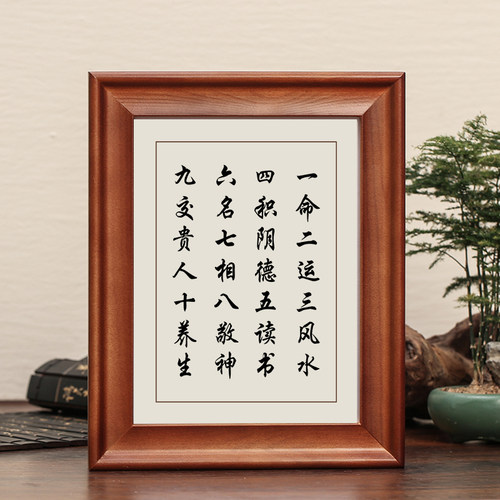 一命二运三风水
四积阴德五读书
六名七相八敬神
九交贵人十养生